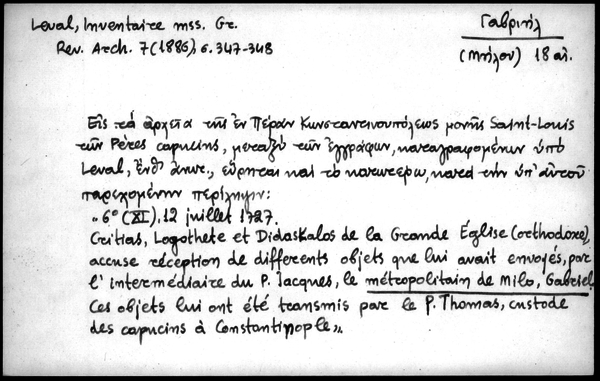 Leval, Inventaire mss. Gr.
Rev. Arch. 7 (1886), σ. 347-348
Γαβριήλ
(Μήλου) 18 αἰ.
Εἰς τὰ ἀρχεῖα τῆς ἐν Πέραν Κωνσταντινουπόλεως μονῆς Saint-Louis
τῶν Pères capucins, μεταξὺ τῶν ἐγγράφων, καταγραφομένων ὑπὸ
Leval, ἔνθ' ἀνωτ., εὕρηται καὶ τὸ κατωτέρω, κατὰ τὴν ὑπ' αὐτοῦ
παρεχομένην περίληψιν:
„6º (XI). 12 juillet 1727.
Critias, Logothete et Didaskalos de la Grande Église (orthodoxe),
accuse réception de differents objets que lui avait envoyés, par
l'intermédiaire du P. Jacques, le métropolitain de Milo, Gabriel.
Ces objets lui ont été transmis par le P. Thomas, custode
des capucins à Constantinople„.